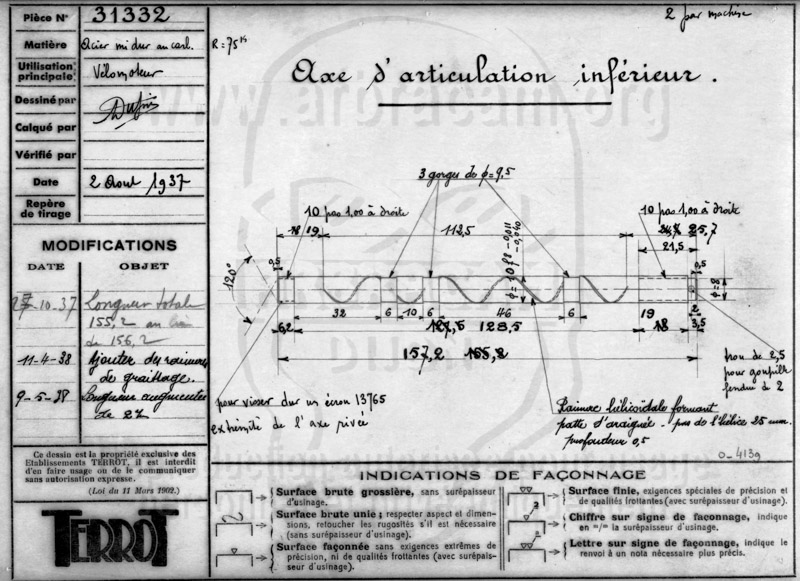 Pièce N° 31332
Matière Acier mi dur au carb.
Utilisation principale: Vélomoteur
Dessiné par
Calqué par
Vérifié par
Date 2 Aout 1937
Repère de tirage
MODIFICATIONS
DATE OBJET
10.37 Longueur totale
155,2 au lieu
de 156,2
11-4-38 Ajouter des rainures
de graissage.
9-5-38 Longueur augmentée
de 2
Ce dessin est la propriété exclusive des
Etablissements TERROT, il est interdit
d'en faire usage ou de le communiquer
sans autorisation expresse.
(Loi du 11 Mars 1902.)
TERROT
2 par machine
R = 75 K
Axe d'articulation inférieur.
www.arbracam.org
3 gorges de ϕ = 9,5
10 pas 1,00 à droite
10 pas 1,00 à droite
18 19 112,5 25,7
21,5
0,5 0,5
120°
32 6 10 6 46 6 19 18 2
6,2 128,5 3,5
157,2 155,2
pour visser sur un écrou 13765
extrémité de l'axe rivée
trou de 2,5
pour goupille
fendue de 2
Rainure hélicoïdale formant
patte d'araignée - pas de l'hélice 25 mm.
profondeur 0,5
0-4139
INDICATIONS DE FAÇONNAGE
Surface brute grossière, sans surépaisseur
d'usinage.
Surface brute unie; respecter aspect et dimen-
sions, retoucher les rugosités s'il est nécessaire
(sans surépaisseur d'usinage).
Surface façonnée sans exigences extrêmes de
précision, ni de qualités frottantes (avec surépais-
seur d'usinage).
Surface finie, exigences spéciales de précision et
de qualités frottantes (avec surépaisseur d'usinage).
Chiffre sur signe de façonnage, indique
en =/= la surépaisseur d'usinage.
Lettre sur signe de façonnage, indique le
renvoi à un nota nécessaire plus précis.